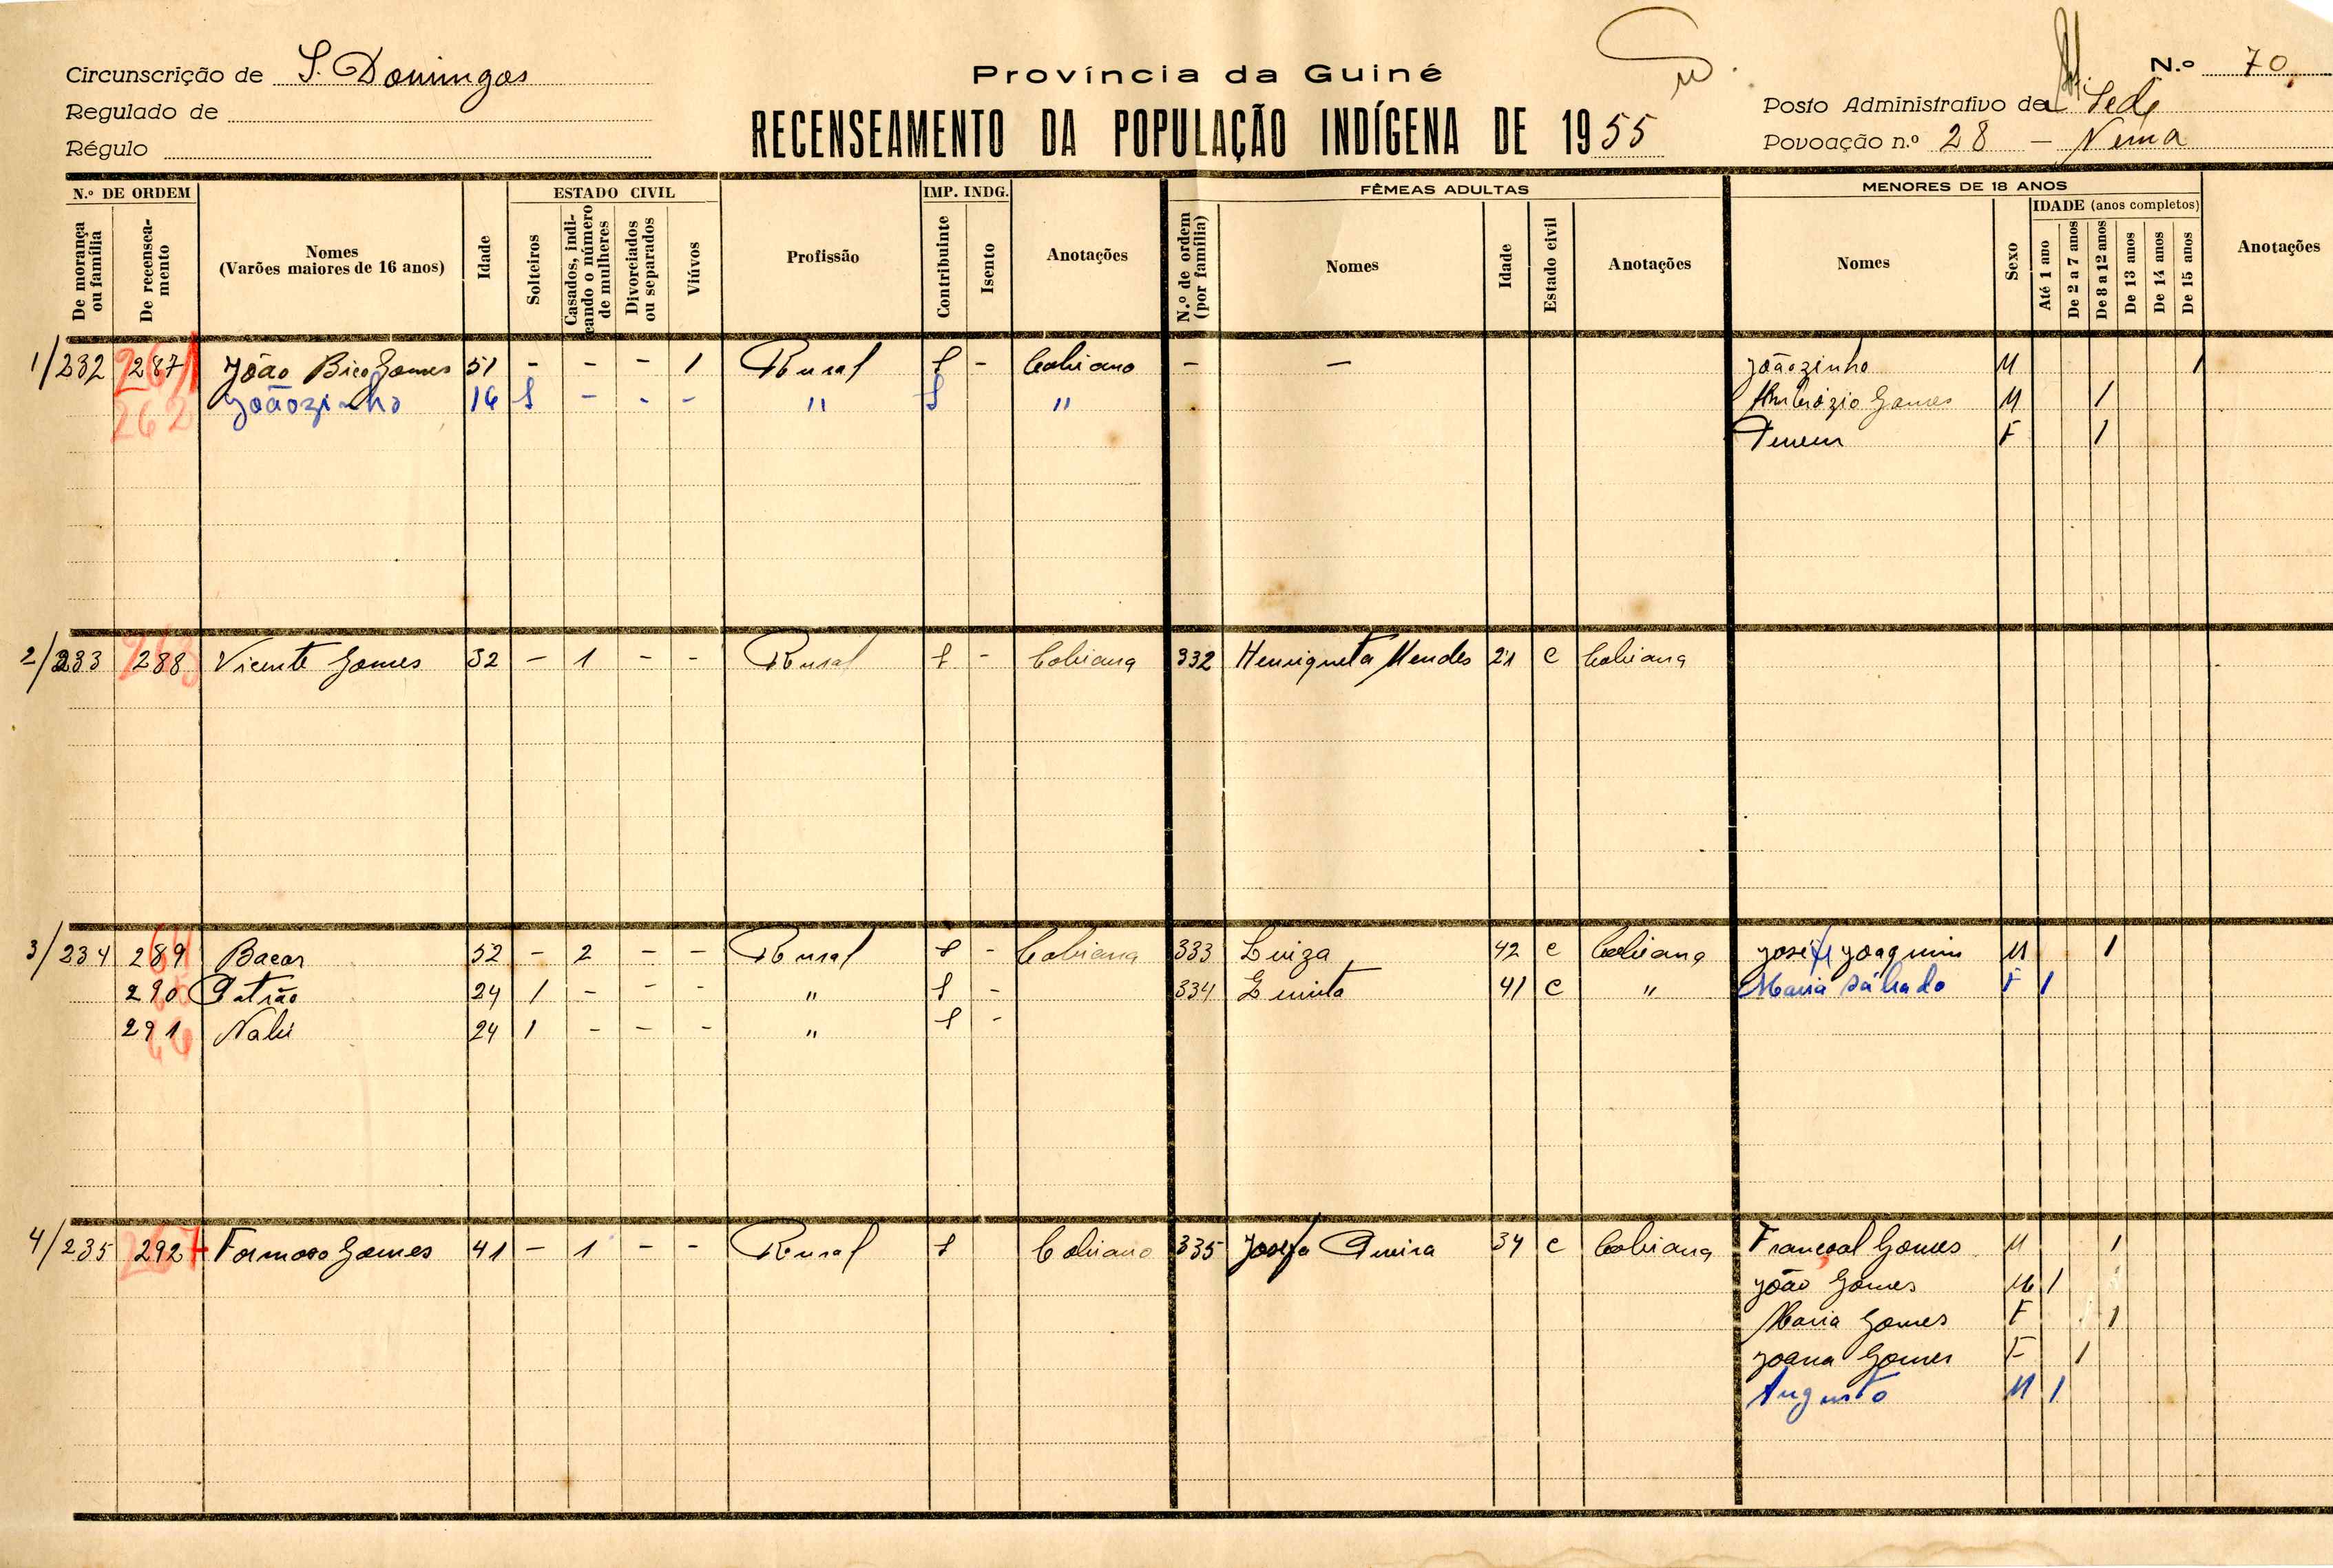 Província da Guiné
RECENSEAMENTO DA POPULAÇÃO INDÍGENA DE 1955
Circunscrição de S. Domingos
Regulado de
Régulo
N.º 70
Posto Administrativo de Sede
Povoação n.º 28 - Nema
N.º DE ORDEM
De morança ou família
De recenseamento
Nomes
(Varões maiores de 16 anos)
Idade
ESTADO CIVIL
Solteiros
Casados, indicando o número de mulheres
Divorciados ou separados
Viúvos
Profissão
IMP. INDG.
Contribuinte
Isento
Anotações
FÊMEAS ADULTAS
N.º de ordem (por família)
Nomes
Idade
Estado civil
Anotações
MENORES DE 18 ANOS
Nomes
Sexo
IDADE (anos completos)
Até 1 ano
De 2 a 7 anos
De 8 a 12 anos
De 13 anos
De 14 anos
De 15 anos
Anotações
1/232 287 261 João Bico Gomes 51 - - - 1 Rural 1 - Cobiano - - Joãozinho M 1
262 Joãozinho 16 1 - - - " 1 " Ambrózio Gomes M 1
F 1
2/233 288 Vicente Gomes 32 - 1 - - Rural 1 - Cobiana 332 Henriqueta Mendes 21 c Cobiana
3/234 289 Bacar 52 - 2 - - Rural 1 - Cobiana 333 Luiza 42 c Cobiana José Joaquim M 1
290 Patrão 24 1 - - - " 1 - 334 41 c " Maria Sábado F 1
291 Nabi 24 1 - - - " 1 -
4/235 292 267 Formoso Gomes 41 - 1 - - Rural 1 Cobiano 335 Josefa 34 c Cobiana Francoal Gomes M 1
João Gomes M 1
Maria Gomes F 1
Joana Gomes F 1
Augusto M 1